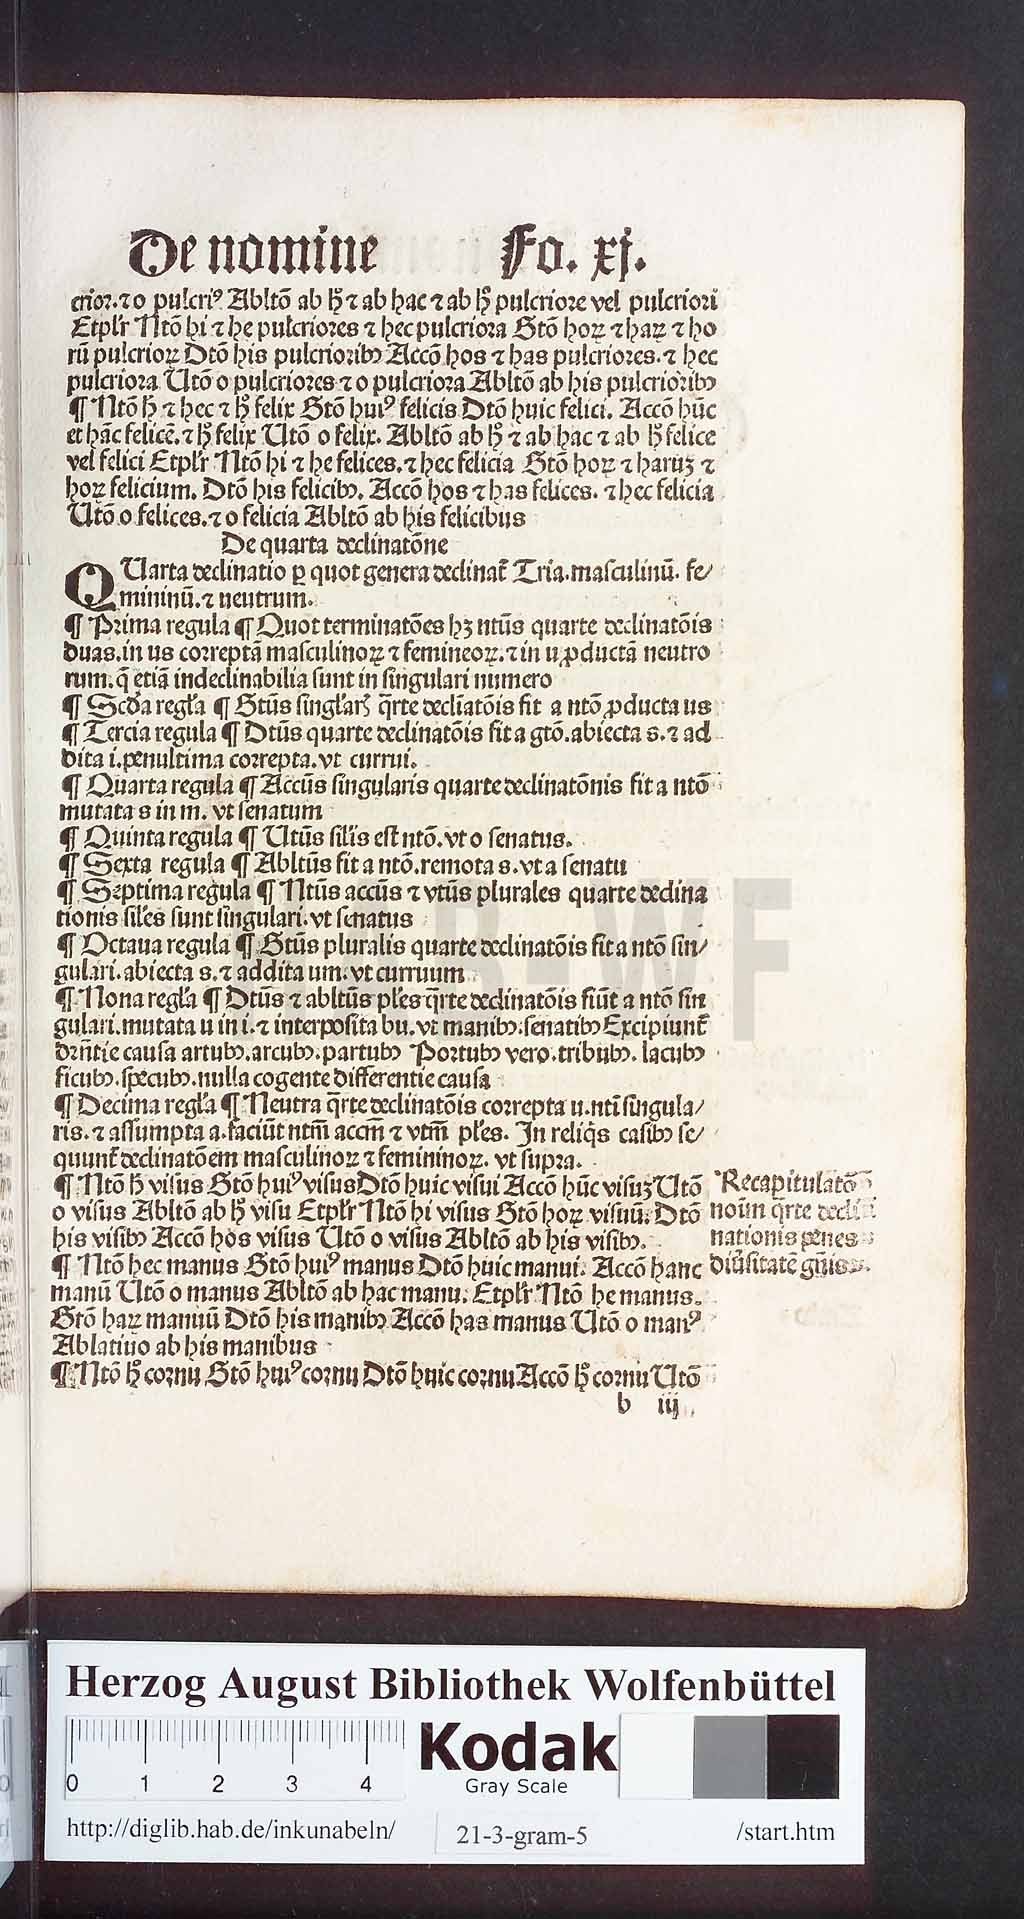 De nomine Fo. xj.
crior. ⁊ o pulcriꝰ Abltō ab hͦ ⁊ ab hac ⁊ ab hͦ pulcriore vel pulcriori
Etplr̄ Ntō hi ⁊ he pulcriores ⁊ hec pulcriora Gtō hoꝝ ⁊ haꝝ ⁊ ho
rū pulcrioꝝ Dtō his pulcrioribꝫ Accō hos ⁊ has pulcriores. ⁊ hec
pulcriora Utō o pulcriores ⁊ o pulcriora Abltō ab his pulcrioribꝫ
¶ Ntō hͨ ⁊ hec ⁊ hͨ felix Gtō huiꝰ felicis Dtō huic felici. Accō hūc
et hāc felicē. ⁊ hͨ felix Utō o felix. Abltō ab hͦ ⁊ ab hac ⁊ ab hͦ felice
vel felici Etplr̄ Ntō hi ⁊ he felices. ⁊ hec felicia Gtō hoꝝ ⁊ haruꝫ ⁊
hoꝝ felicium. Dtō his felicibꝫ. Accō hos ⁊ has felices. ⁊ hec felicia
Utō o felices. ⁊ o felicia Abltō ab his felicibus
De quarta declinatōne
QUarta declinatio ꝑ quot genera declinat̄ Tria. masculinū. fe/
mininū. ⁊ neutrum.
¶ Prima regula ¶ Quot terminatōes hꝫ ntūs quarte declinatōis
duas. in us correptā masculinoꝝ ⁊ femineoꝝ. ⁊ in u ꝓductā neutro
rum. q̄ etiā indeclinabilia sunt in singulari numero
¶ Scd̄a regl̄a ¶ Gtūs singl̄arꝭ q̄rte decliatōis fit a ntō ꝓducta us
¶ Tercia regula ¶ Dtūs quarte declinatōis fit a gtō. abiecta s. ⁊ ad
dita i. penultima correpta. vt currui.
¶ Quarta regula ¶ Accūs singularis quarte declinatōnis fit a ntō
mutata s in m. vt senatum
¶ Quinta regula ¶ Utūs sil̄is est ntō. vt o senatus.
¶ Sexta regula ¶ Abltūs fit a ntō. remota s. vt a senatu
¶ Septima regula ¶ Ntūs accūs ⁊ vtūs plurales quarte declina
tionis sil̄es sunt singulari. vt senatus
¶ Octaua regula ¶ Gtūs pluralis quarte declinatōis fit a ntō sin/
gulari. abiecta s. ⁊ addita um. vt curruum
¶ Nona regl̄a ¶ Dtūs ⁊ abltūs pl̄es q̄rte declinatōis fiūt a ntō sin
gulari. mutata u in i. ⁊ interposita bu. vt manibꝫ. senatibꝫ Excipiunt̄
dr̄ntie causa artubꝫ. arcubꝫ. partubꝫ Portubꝫ vero. tribubꝫ. lacubꝫ
ficubꝫ. specubꝫ. nulla cogente differentie causa
¶ Decima regl̄a ¶ Neutra q̄rte declinatōis correpta u. ntī singula/
ris. ⁊ assumpta a. faciūt ntm̄ accm̄ ⁊ vtm̄ pl̄es. In reliq̇s casibꝫ se/
quunt̄ declinatōem masculinoꝝ ⁊ femininoꝝ. vt supra.
¶ Ntō hͨ visus Gtō huiꝰ visus Dtō huic visui Accō hūc visuꝫ Utō
o visus Abltō ab hͦ visu Etplr̄ Ntō hi visus Gtō hoꝝ visuū. Dtō
his visibꝫ Accō hos visus Utō o visus Abltō ab his visibꝫ.
¶ Ntō hec manus Gtō huiꝰ manus Dtō huic manui. Accō hanc
manū Utō o manus Abltō ab hac manu. Etplr̄ Ntō he manus.
Gtō haꝝ manuū Dtō his manibꝫ Accō has manus Utō o manꝰ
Ablatiuo ab his manibus
¶ Ntō hͨ cornu Gtō huiꝰ cornu Dtō huic cornu Accō hͨ cornu Utō
b iij
Recapitulatō
noūm q̄rte decli
nationis penes
diūsitatē gn̄is.
HAB-WF
Herzog August Bibliothek Wolfenbüttel
0 1 2 3 4
Kodak
Gray Scale
http://diglib.hab.de/inkunabeln/ 21-3-gram-5 /start.htm